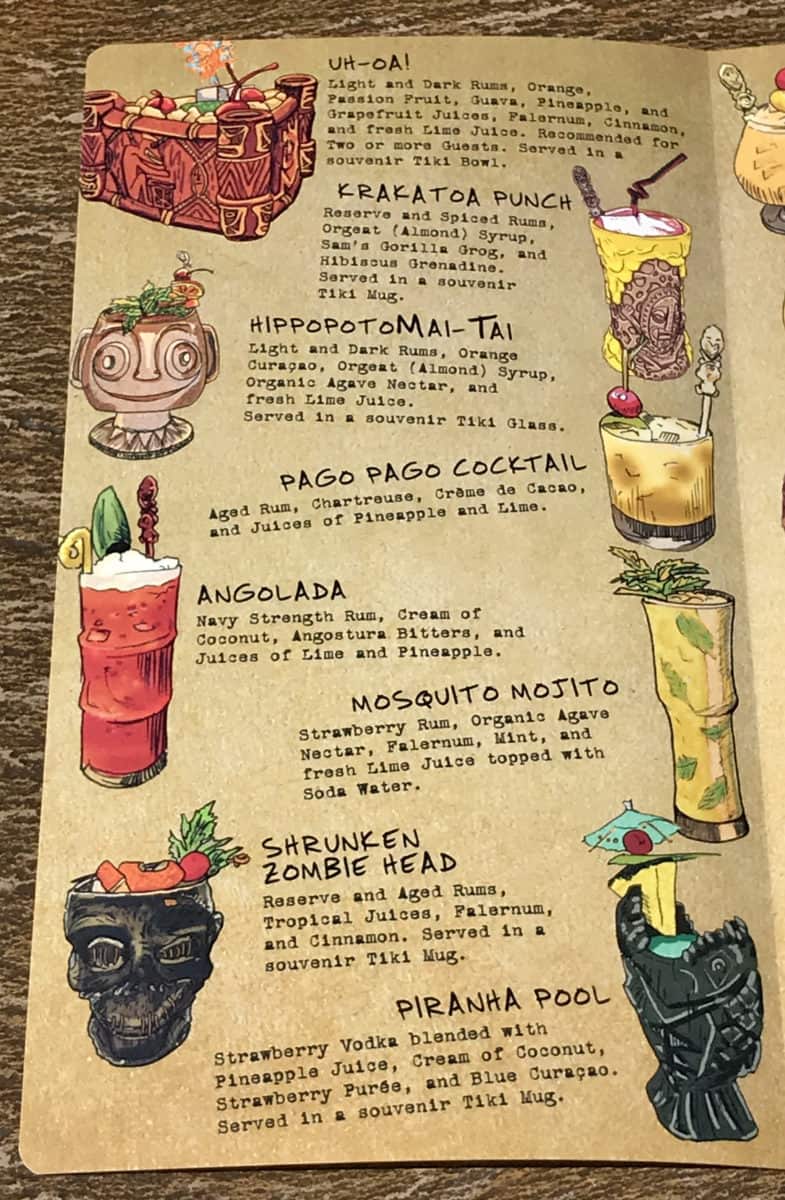 UH-OA!
Light and Dark Rums, Orange,
Passion Fruit, Guava, Pineapple, and
Grapefruit Juices, Falernum, Cinnamon,
and fresh Lime Juice. Recommended for
Two or more Guests. Served in a
souvenir Tiki Bowl.
KRAKATOA PUNCH
Reserve and Spiced Rums,
Orgeat (Almond) Syrup,
Sam's Gorilla Grog, and
Hibiscus Grenadine.
Served in a souvenir
Tiki Mug.
HIPPOPOTOMAI-TAI
Light and Dark Rums, Orange
Curaçao, Orgeat (Almond) Syrup,
Organic Agave Nectar, and
fresh Lime Juice.
Served in a souvenir Tiki Glass.
PAGO PAGO COCKTAIL
Aged Rum, Chartreuse, Crème de Cacao,
and Juices of Pineapple and Lime.
ANGOLADA
Navy Strength Rum, Cream of
Coconut, Angostura Bitters, and
Juices of Lime and Pineapple.
MOSQUITO MOJITO
Strawberry Rum, Organic Agave
Nectar, Falernum, Mint, and
fresh Lime Juice topped with
Soda Water.
SHRUNKEN
ZOMBIE HEAD
Reserve and Aged Rums,
Tropical Juices, Falernum,
and Cinnamon. Served in a
souvenir Tiki Mug.
PIRANHA POOL
Strawberry Vodka blended with
Pineapple Juice, Cream of Coconut,
Strawberry Purée, and Blue Curaçao.
Served in a souvenir Tiki Mug.